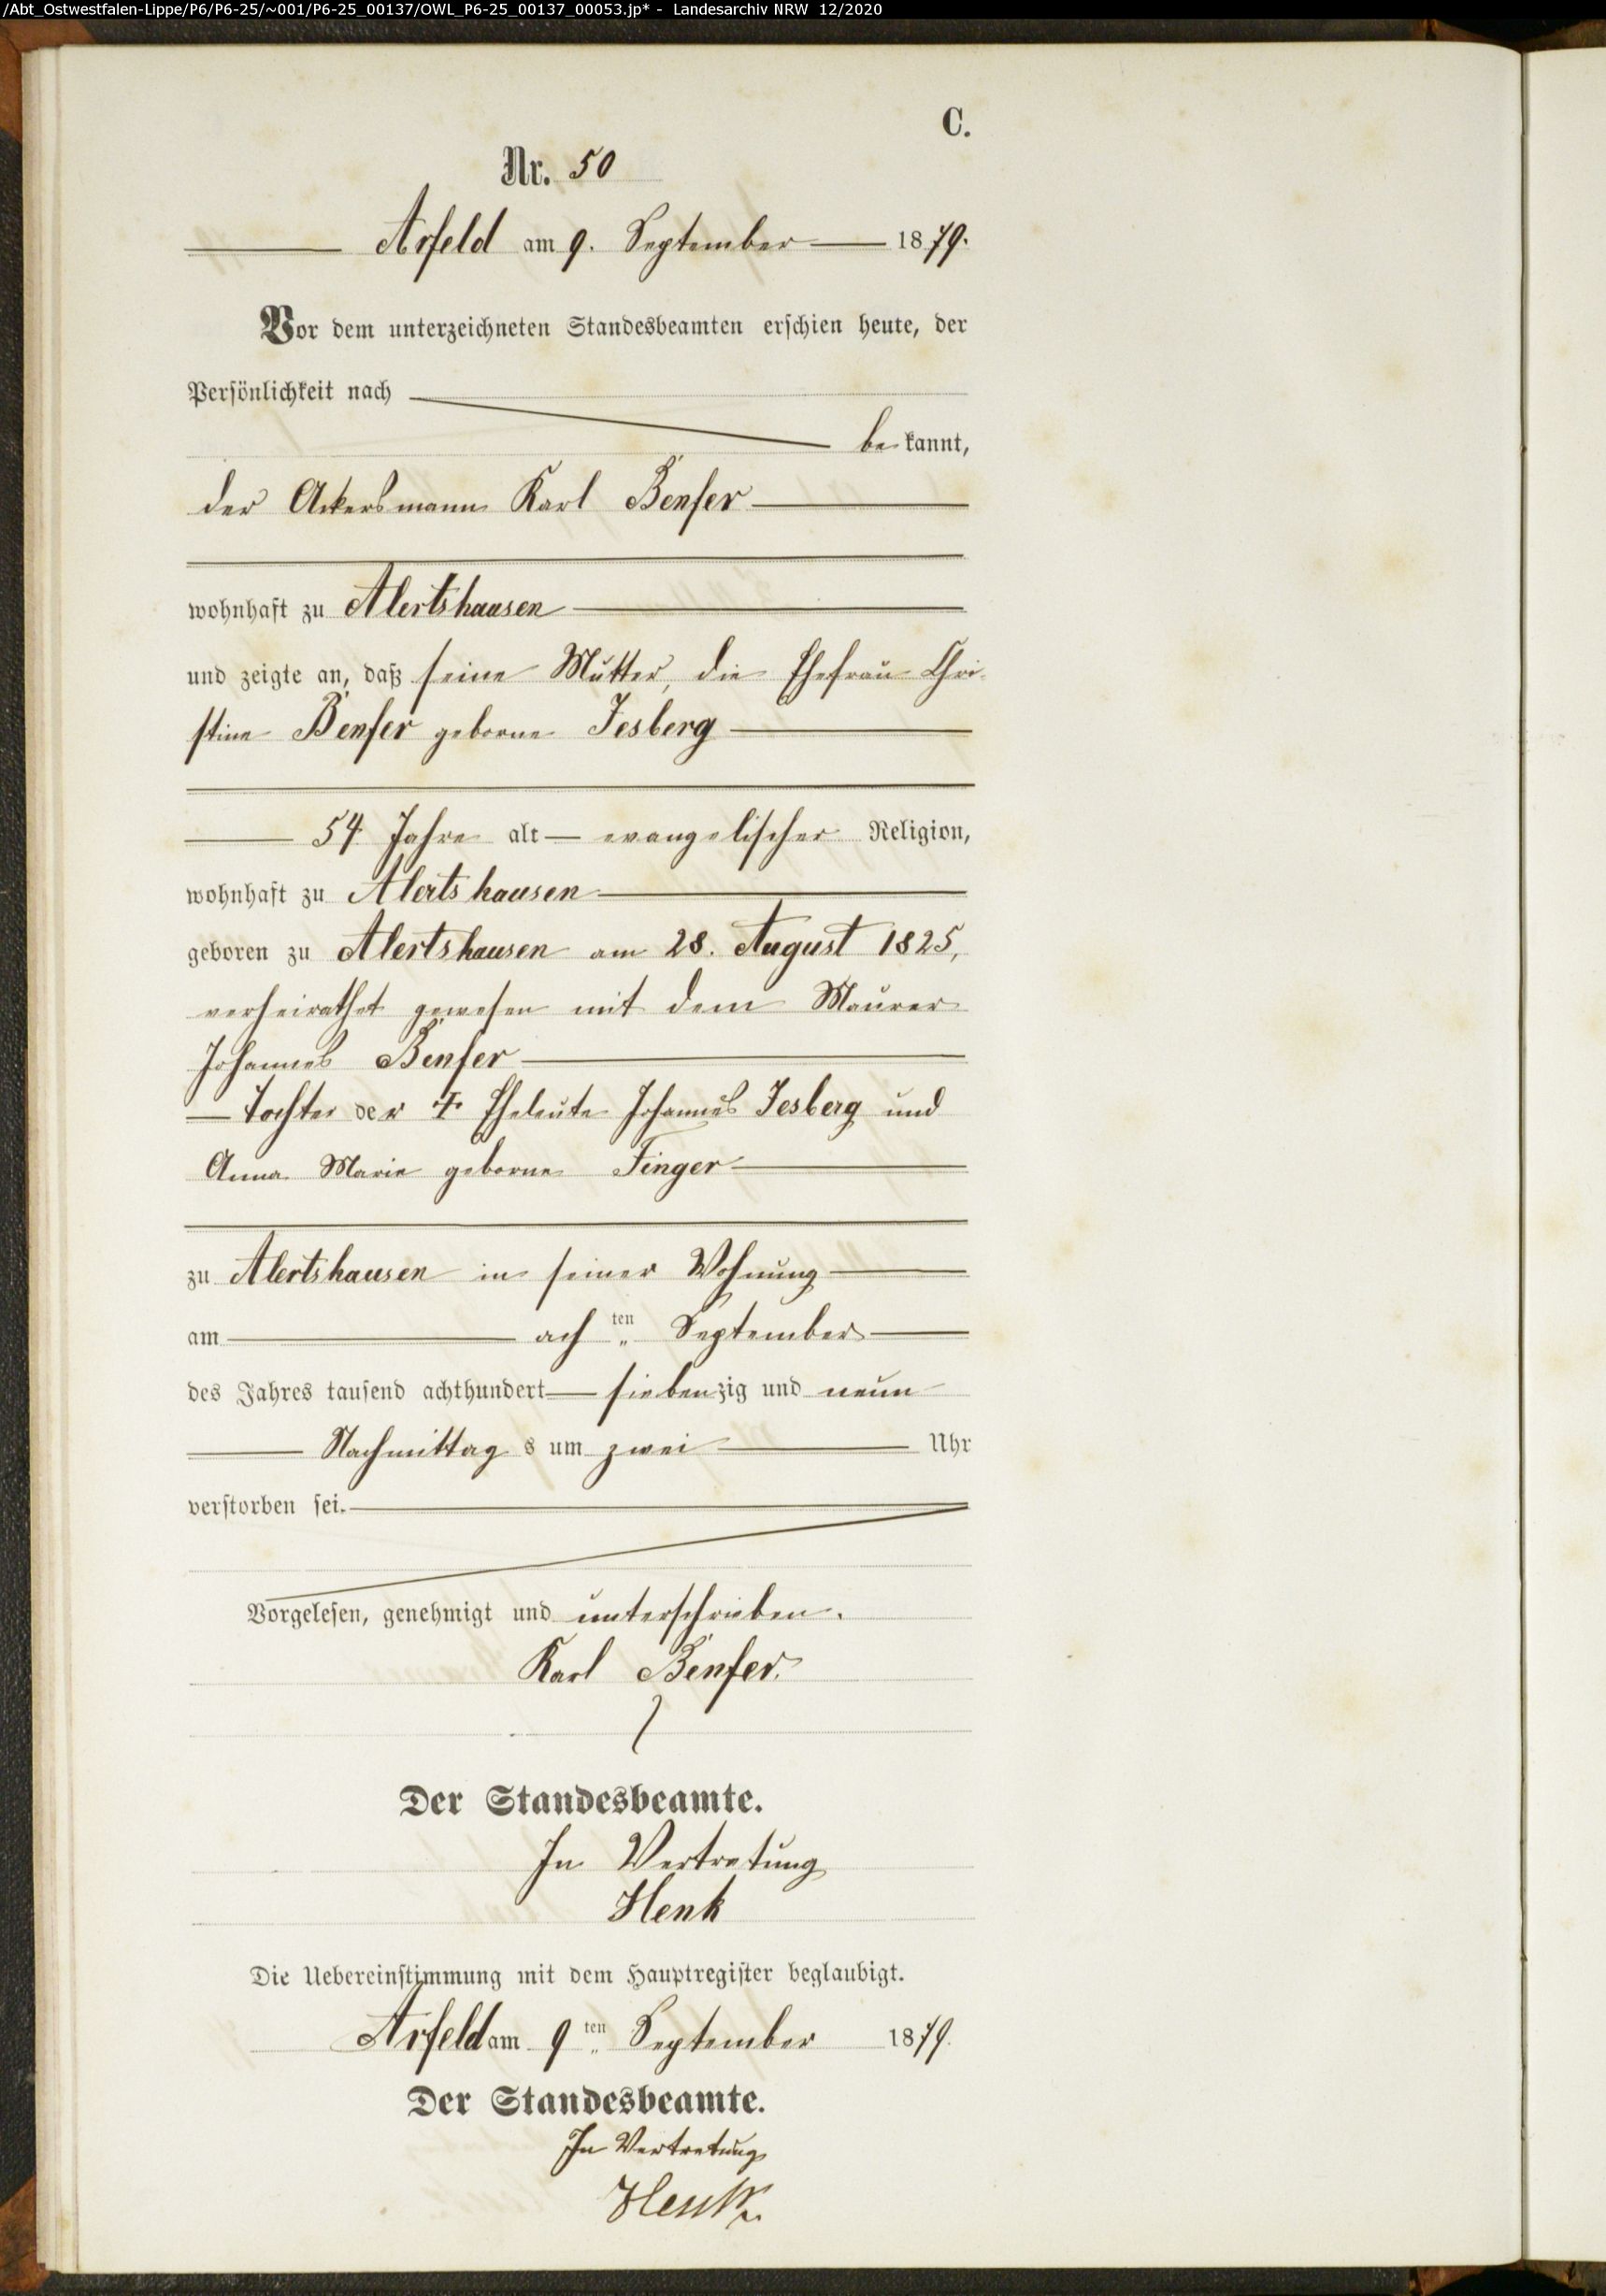 /Abt_Ostwestfalen-Lippe/P6/P6-25/~001/P6-25_00137/OWL_P6-25_00137_00053.jp* - Landesarchiv NRW 12/2020
C.
Nr. 50
Arfeld am 9. September 1879.
Vor dem unterzeichneten Standesbeamten erschien heute, der
Persönlichkeit nach
be kannt,
der Ackersmann Karl Benfer
wohnhaft zu Alertshausen
und zeigte an, daß seine Mutter, die Ehefrau Chri-
stine Benfer geborne Jesberg
54 Jahre alt evangelischer Religion,
wohnhaft zu Alertshausen
geboren zu Alertshausen am 28. August 1825,
verheirathet gewesen mit dem Maurer
Johannes Benfer
Tochter der † Eheleute Johannes Jesberg und
Anna Marie geborne Finger
zu Alertshausen in seiner Wohnung
am ach ten September
des Jahres tausend achthundert siebenzig und neun
Nachmittag s um zwei Uhr
verstorben sei.
Vorgelesen, genehmigt und unterschrieben.
Karl Benfer.
Der Standesbeamte.
In Vertretung
Henk
Die Uebereinstimmung mit dem Hauptregister beglaubigt.
Arfeld am 9ten September 1879.
Der Standesbeamte.
In Vertretung
Henk